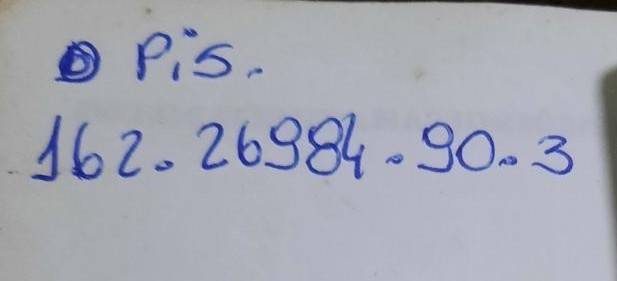 Pis.
162.26984.90.3